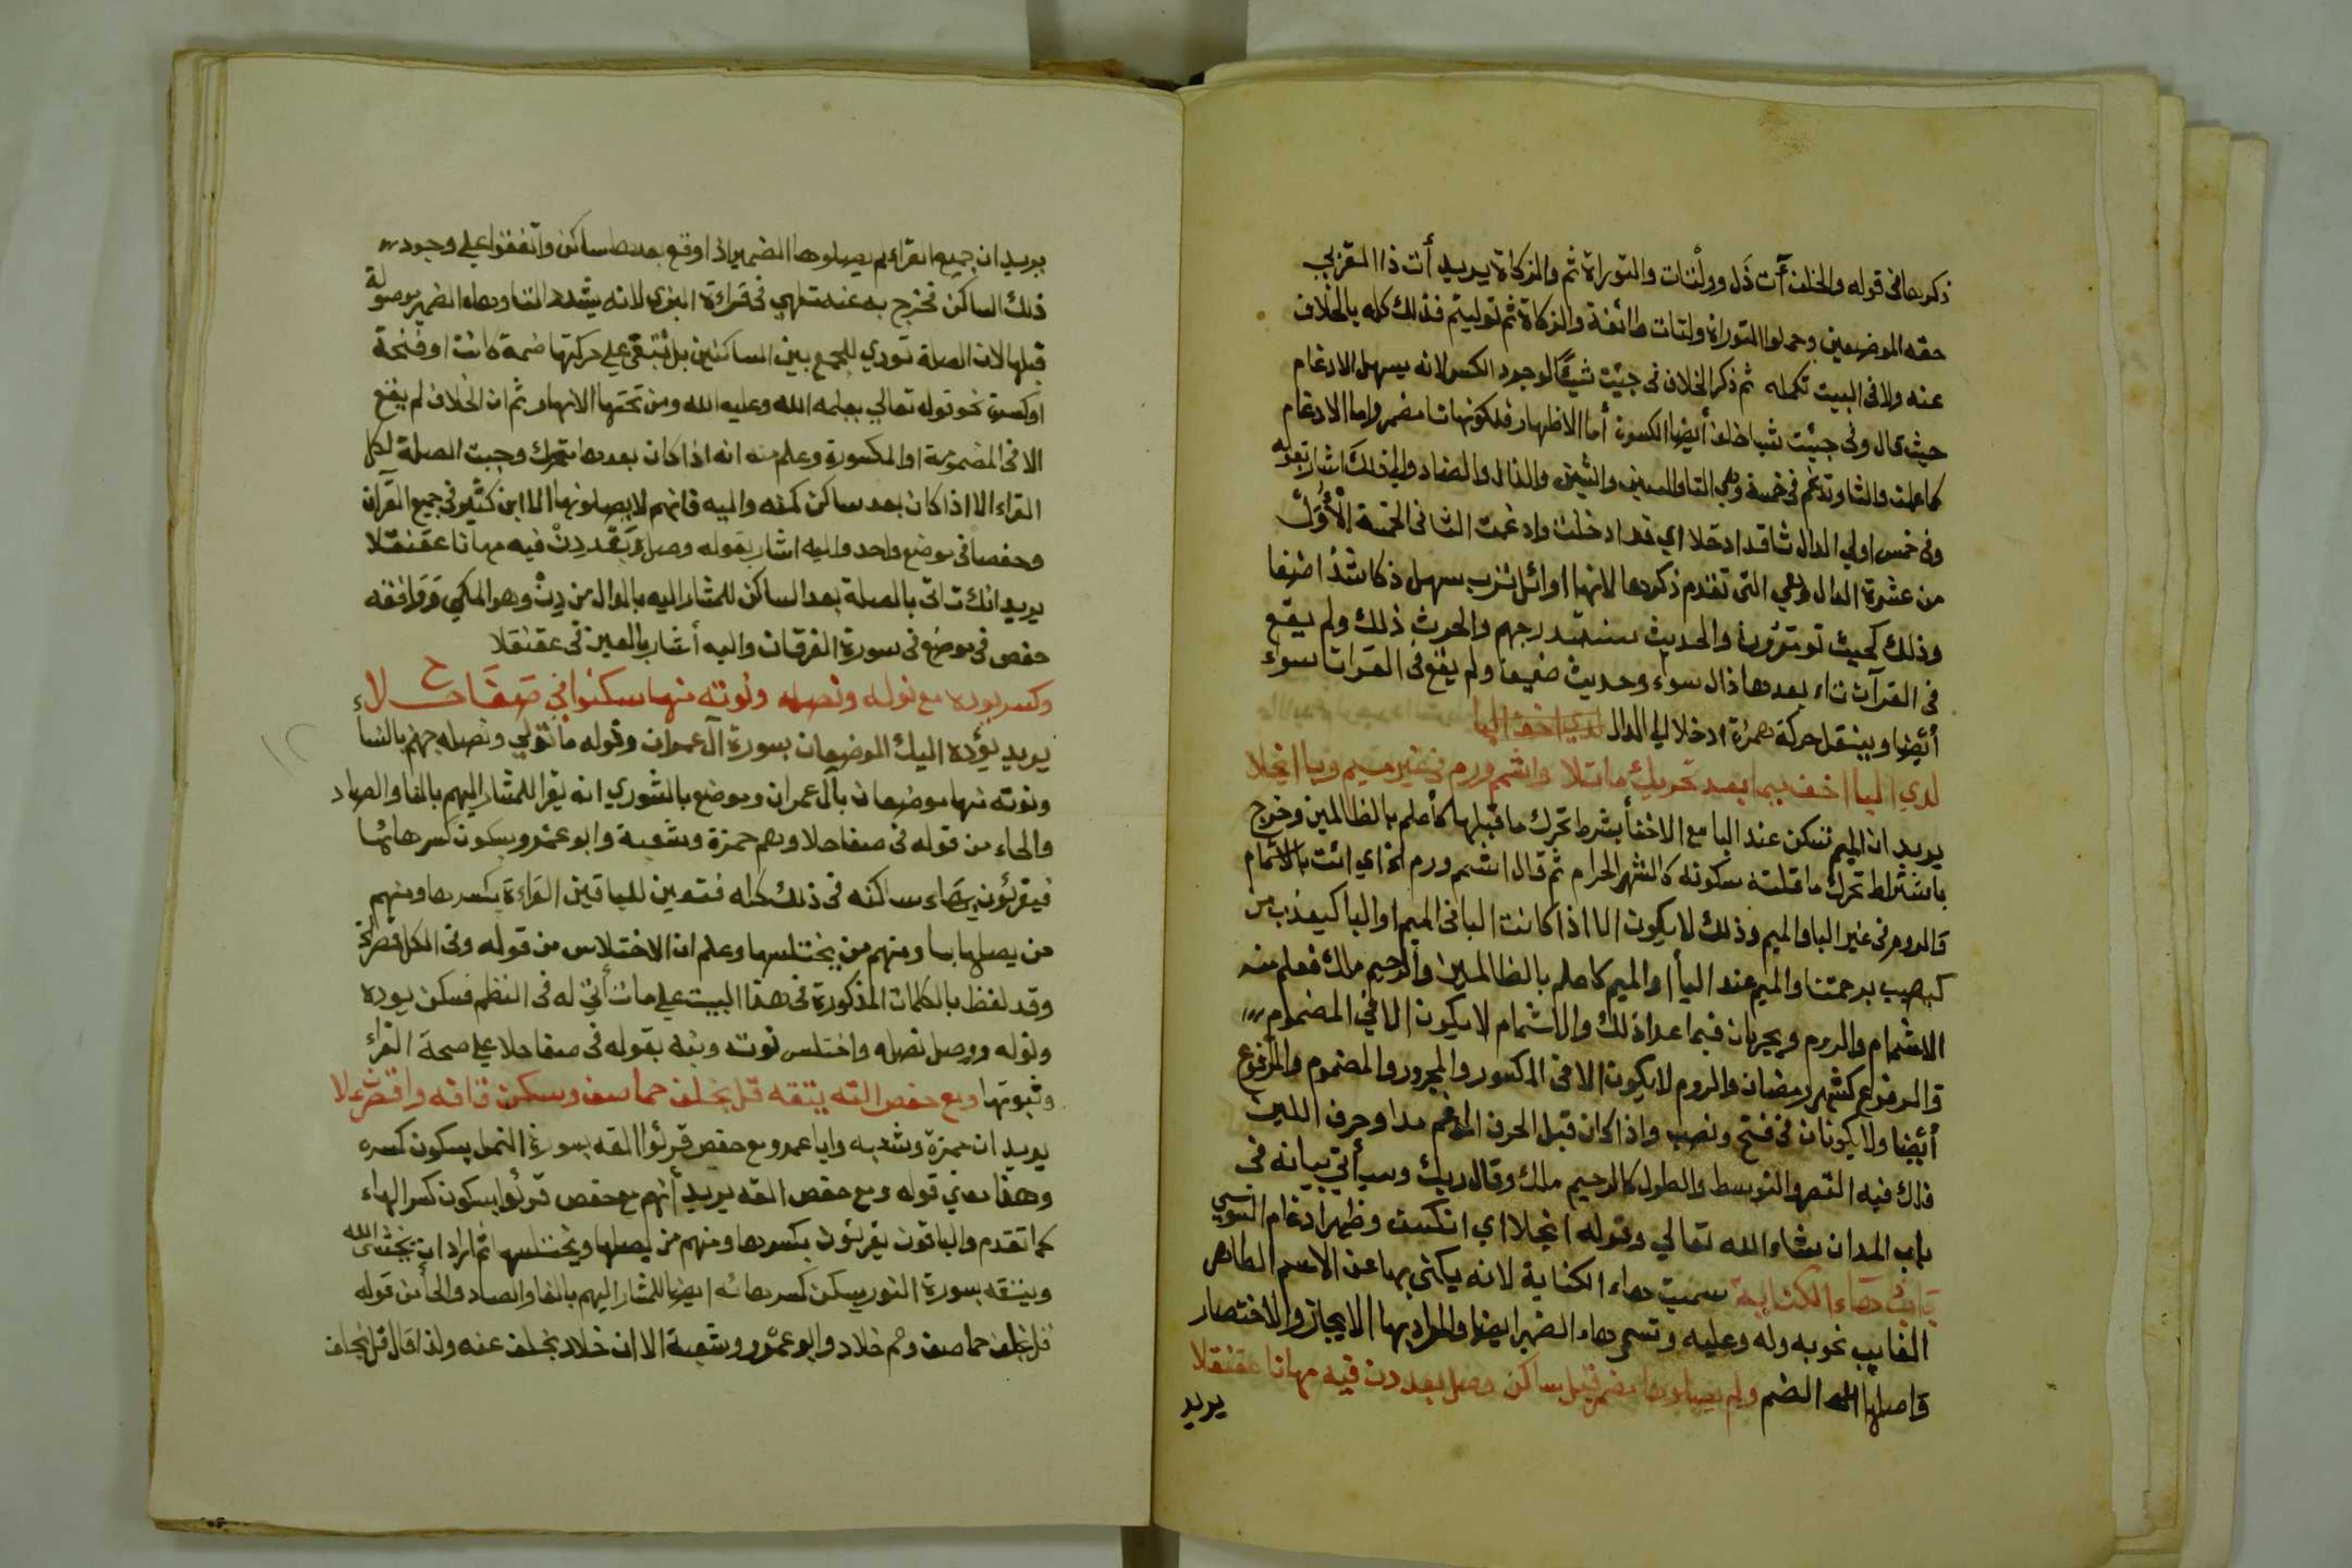 ذكرها في قوله والخلف آت ذل وولتات والتوراة ثم والزكاة يريد أت ذا القربى
حقه الموضعين وحملوا التوراة ولتات طائفة والزكاة ثم توليتم فذلك كله بالخلاف
عنه ولا في البيت تكمله ثم ذكر الخلاف في جيت شيأ لوجود الكسر لانه يسهل الادغام
حيث قال وفي جيت شيا خلف أيضا الكسرة أما الاظهار فلكونها تا مضمر واما الادغام
كما علمت والثا وتدغم في خمسة وهي التا والسين والشين والذال والضاد والى ذلك اشار بقوله
وفي خمس اولي الدال ثا قد ادخلا اي قد ادخلت وادغمت الثا في الخمسة الأول
من عشرة الدال وهي التي تقدم ذكرها لانها اوائل ترب سهل ذكا شذا ضفا
وذلك كحيث تومرون والحديث سنستدرجهم والحرث ذلك ولم يقع
في القرآن ثاء بعدها ذال سواء وحديث ضيف ولم يقع في القرآن سواء
أيضا وبنقل حركة همزة ادخلا الي الدال لدي اخف اليا
لدي البا اخف ميما بعد تحريك ما تلا واشمم ورم في غير ميم وبا انجلا
يريد ان الميم تسكن عند البا مع الاخفأ بشرط تحرك ما قبلها كأعلم بالظالمين وخرج
باشتراط تحرك ما قبلت سكونه كالشهر الحرام ثم قال اشمم ورم الخ اي ائت بالاشمام
والروم في غير البا والميم وذلك لا يكون الا اذا كانت البا في الميم او البا كيعذب من
كيصيب برحمتنا والميم عند البأ او الميم كاعلم بالظالمين والرحيم ملك فعلم منه
الاشمام والروم ويجريان فيما عدا ذلك والاشمام لا يكون الا في المضموم
والمرفوع كشهر رمضان والروم لا يكون الا في المكسور والمجرور والمضموم والمرفوع
أيضا ولا يكونان في فتح ونصب واذا كان قبل الحرف المدغم مدا وحرف اللين
فلك فيه القصر والتوسط والطول كالرحيم ملك وقال ربك وسيأتي بيانه في
باب المد ان شاء الله تعالي وقوله انجلا اي انكشف وظهر ادغام السوسي
باب هاء الكناية سميت هاء الكناية لانه يكنى بها عن الاسم الظاهر
الغايب نحو به وله وعليه وتسمى هاء الضمير ايضا والمراد بها الايجاز والاختصار
واصلها الضم ولم يصلوا ها مضمر قبل ساكن وصل بعد دن فيه مهانا عقنقلا
يريد
يريد ان جميع القراء لم يصلوها الضمير اذا وقع بعدها ساكن واتفقوا علي وجود
ذلك الساكن فخرج به عنه تلهي في قراءة البزي لانه يشدد التا وهاء الضمير موصولة
قبلها لان الصلة تؤدي للجمع بين الساكنين بل تبقى علي حركتها ضمة كانت او فتحة
او كسرة نحو قوله تعالي يعلمه الله وعليه الله ومن تحتها الانهار ثم ان الخلاف لم يقع
الا في المضمومة او المكسورة وعلم منه انه اذا كان بعدها متحرك وجبت الصلة لكل
القراء الا اذا كان بعد ساكن كمنه واليه فانهم لا يصلونها الا ابن كثير في جميع القرآن
وحفصا في موضع واحد واليه اشار بقوله وصل وبعد دن فيه مهانا عقنقلا
يريد انك تاتي بالصلة بعد الساكن للمشار اليه بالدال من دن وهو المكي ووافقه
حفص في موضع في سورة الفرقان واليه أشار بالعين في عقنقلا
وكسر يوده مع نوله ونصله ونوته منها سكنوا في صفا حلاء
يريد يؤده اليك الموضعان بسورة آل عمران وقوله ما تولي ونصله جهنم بالنسا
ونوته منها موضعان بآل عمران وموضع بالشوري انه يقرا للمشار اليهم بالفا والصاد
والحاء من قوله في صفا حلا وهم حمزة وشعبة وابو عمرو بسكون كسر هائها
فيقرئون بهاء ساكنه في ذلك كله فتعين للباقين القراءة بكسرها ومنهم
من يصلها بيا ومنهم من يختلسها وعلم ان الاختلاس من قوله وفي الكل قصر الخ
وقد لفظ بالكلمات المذكورة في هذا البيت علي ما تأتي له في النظم فسكن يوده
ونوله ووصل نصله واختلس نوته ونبه بقوله في صفا حلا علي صحة القراء
وثبوتها ومع حفص القه يتقه قل بخلف حما صف وسكن قافه واقصر علا
يريد ان حمزة وشعبه وابا عمرو مع حفص قرئوا القه بسورة النمل بسكون كسره
وهذا معني قوله ومع حفص القه يريد أنهم مع حفص قرئوا بسكون كسر الهاء
كما تقدم والباقون يقرئون بكسرها ومنهم من يصلها ويختلسها ثم اراد ان يخش الله
ويتقه بسورة النور يسكن كسر هائه ايضا للمشار اليهم بالقا والصاد والحأ من قوله
قل بخلف حما صف وهم خلاد وابو عمرو وشعبة الا ان خلاد بخلف عنه ولذا قال قل بخلف